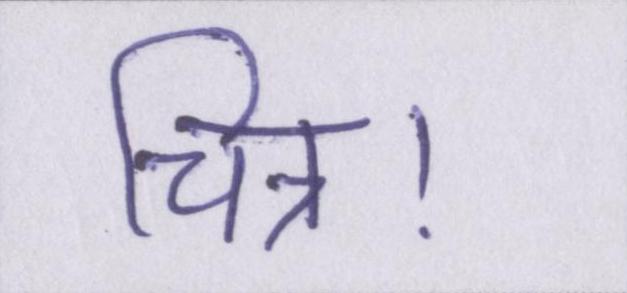 चित्र!